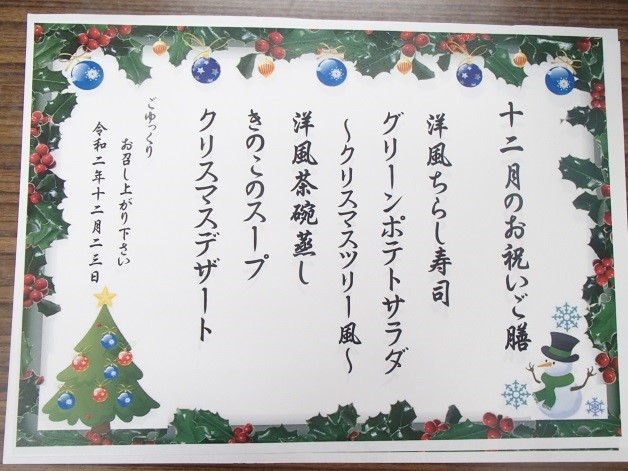 十二月のお祝いご膳
洋風ちらし寿司
グリーンポテトサラダ
～クリスマスツリー風～
洋風茶碗蒸し
きのこのスープ
クリスマスデザート
ごゆっくり
お召し上がり下さい
令和二年十二月二三日